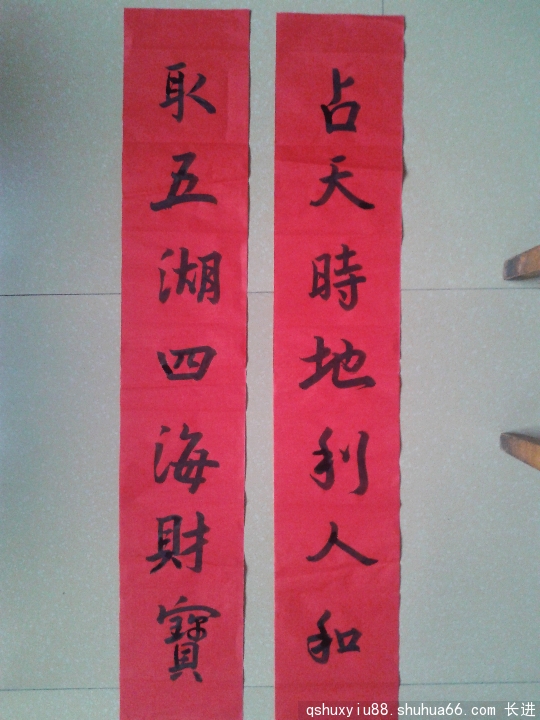 占天時地利人和
取五湖四海財寶
qshuxyiu88.shuhua66.com 长进